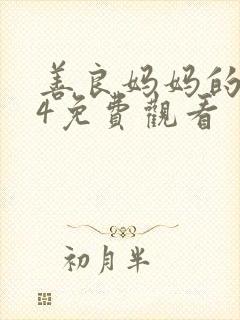 善良妈妈的
4免费觀看
初月半